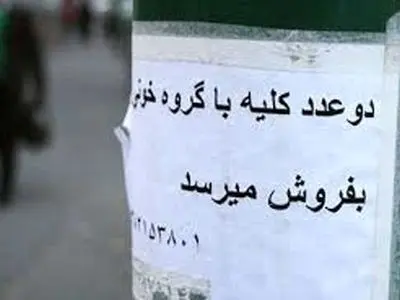 دو عدد کلیه با گروه خونی
بفروش میرسد
۲۱۵۳۸۰۱